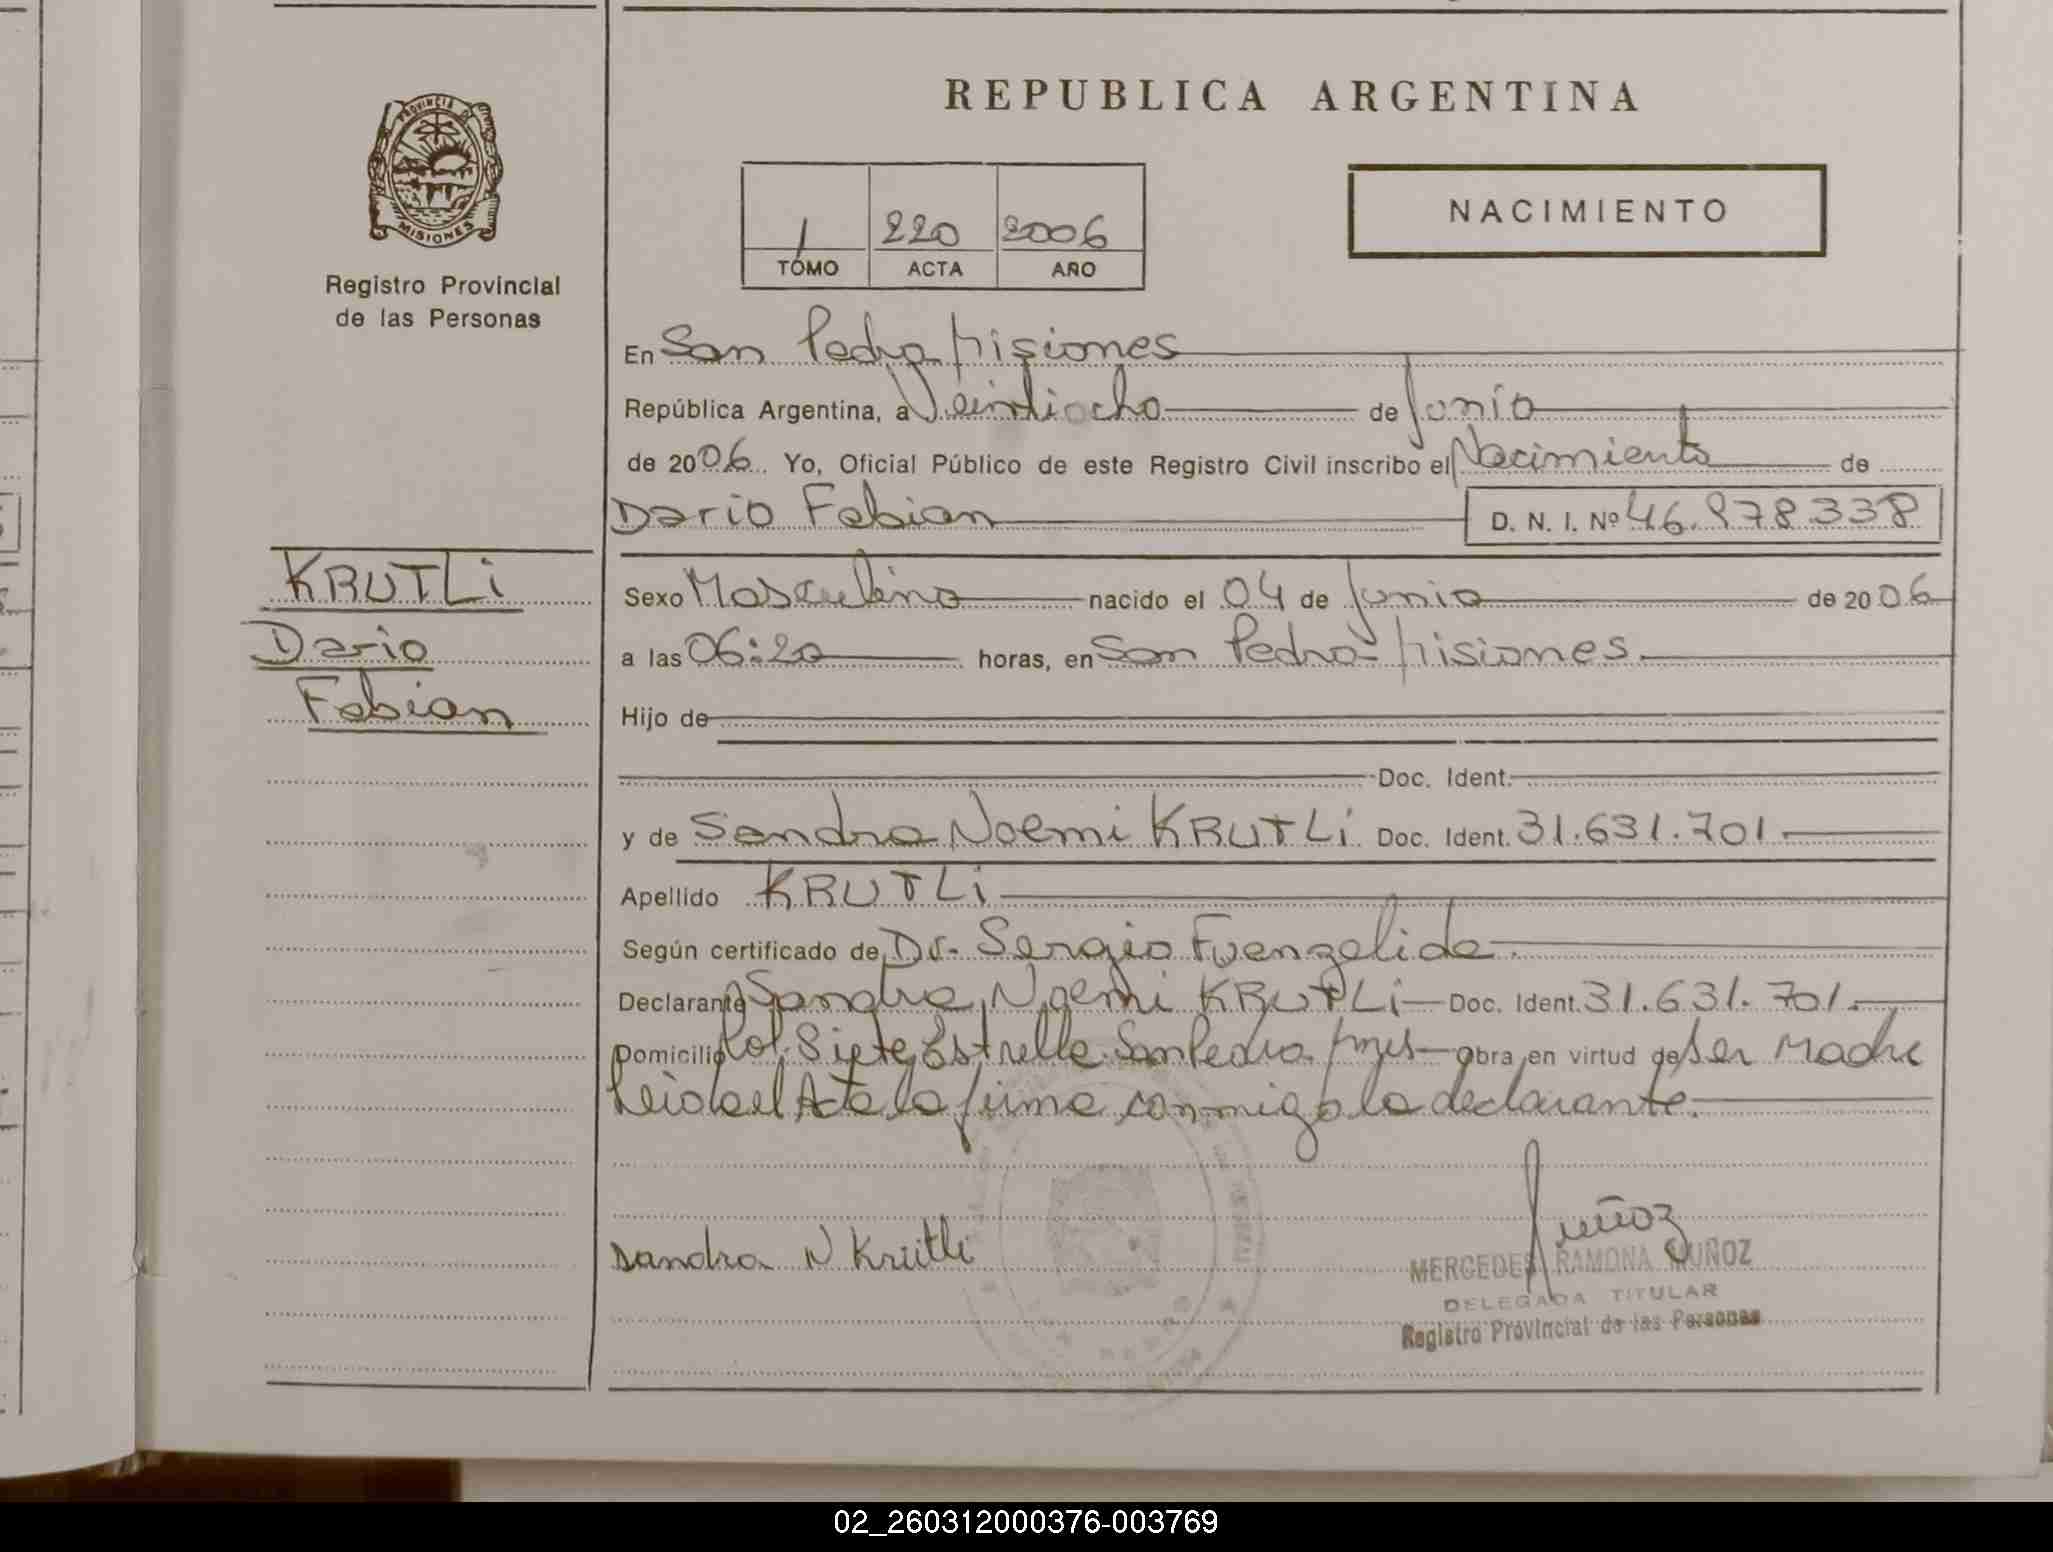 REPUBLICA ARGENTINA
PROVINCIA DE
MISIONES
Registro Provincial
de las Personas
1 220 2006
TOMO ACTA AÑO
NACIMIENTO
En San Pedro Misiones
República Argentina, a Veintiocho de Junio
de 2006. Yo, Oficial Público de este Registro Civil inscribo el Nacimiento de
Dario Fabian D. N. I. Nº 46.978338
KRUTLi
Dario
Fabian
Sexo Masculino nacido el 04 de Junio de 2006
a las 06:20 horas, en San Pedro Misiones.
Hijo de
Doc. Ident.
y de Sandra Noemi KRUTLi Doc. Ident. 31.631.701.
Apellido KRUTLi
Según certificado de Dr. Sergio Fuenzalida.
Declarante Sandra Noemi KRUTLi Doc. Ident. 31.631.701.
Domicilio Col. Siete Estrella San Pedro Mnes obra en virtud de Ser Madre
Leida el Acta la firma conmigo la declarante.
Sandra N Krütli
Muñoz
MERCEDES RAMONA MUÑOZ
DELEGADA TITULAR
Registro Provincial de las Personas
02_260312000376-003769